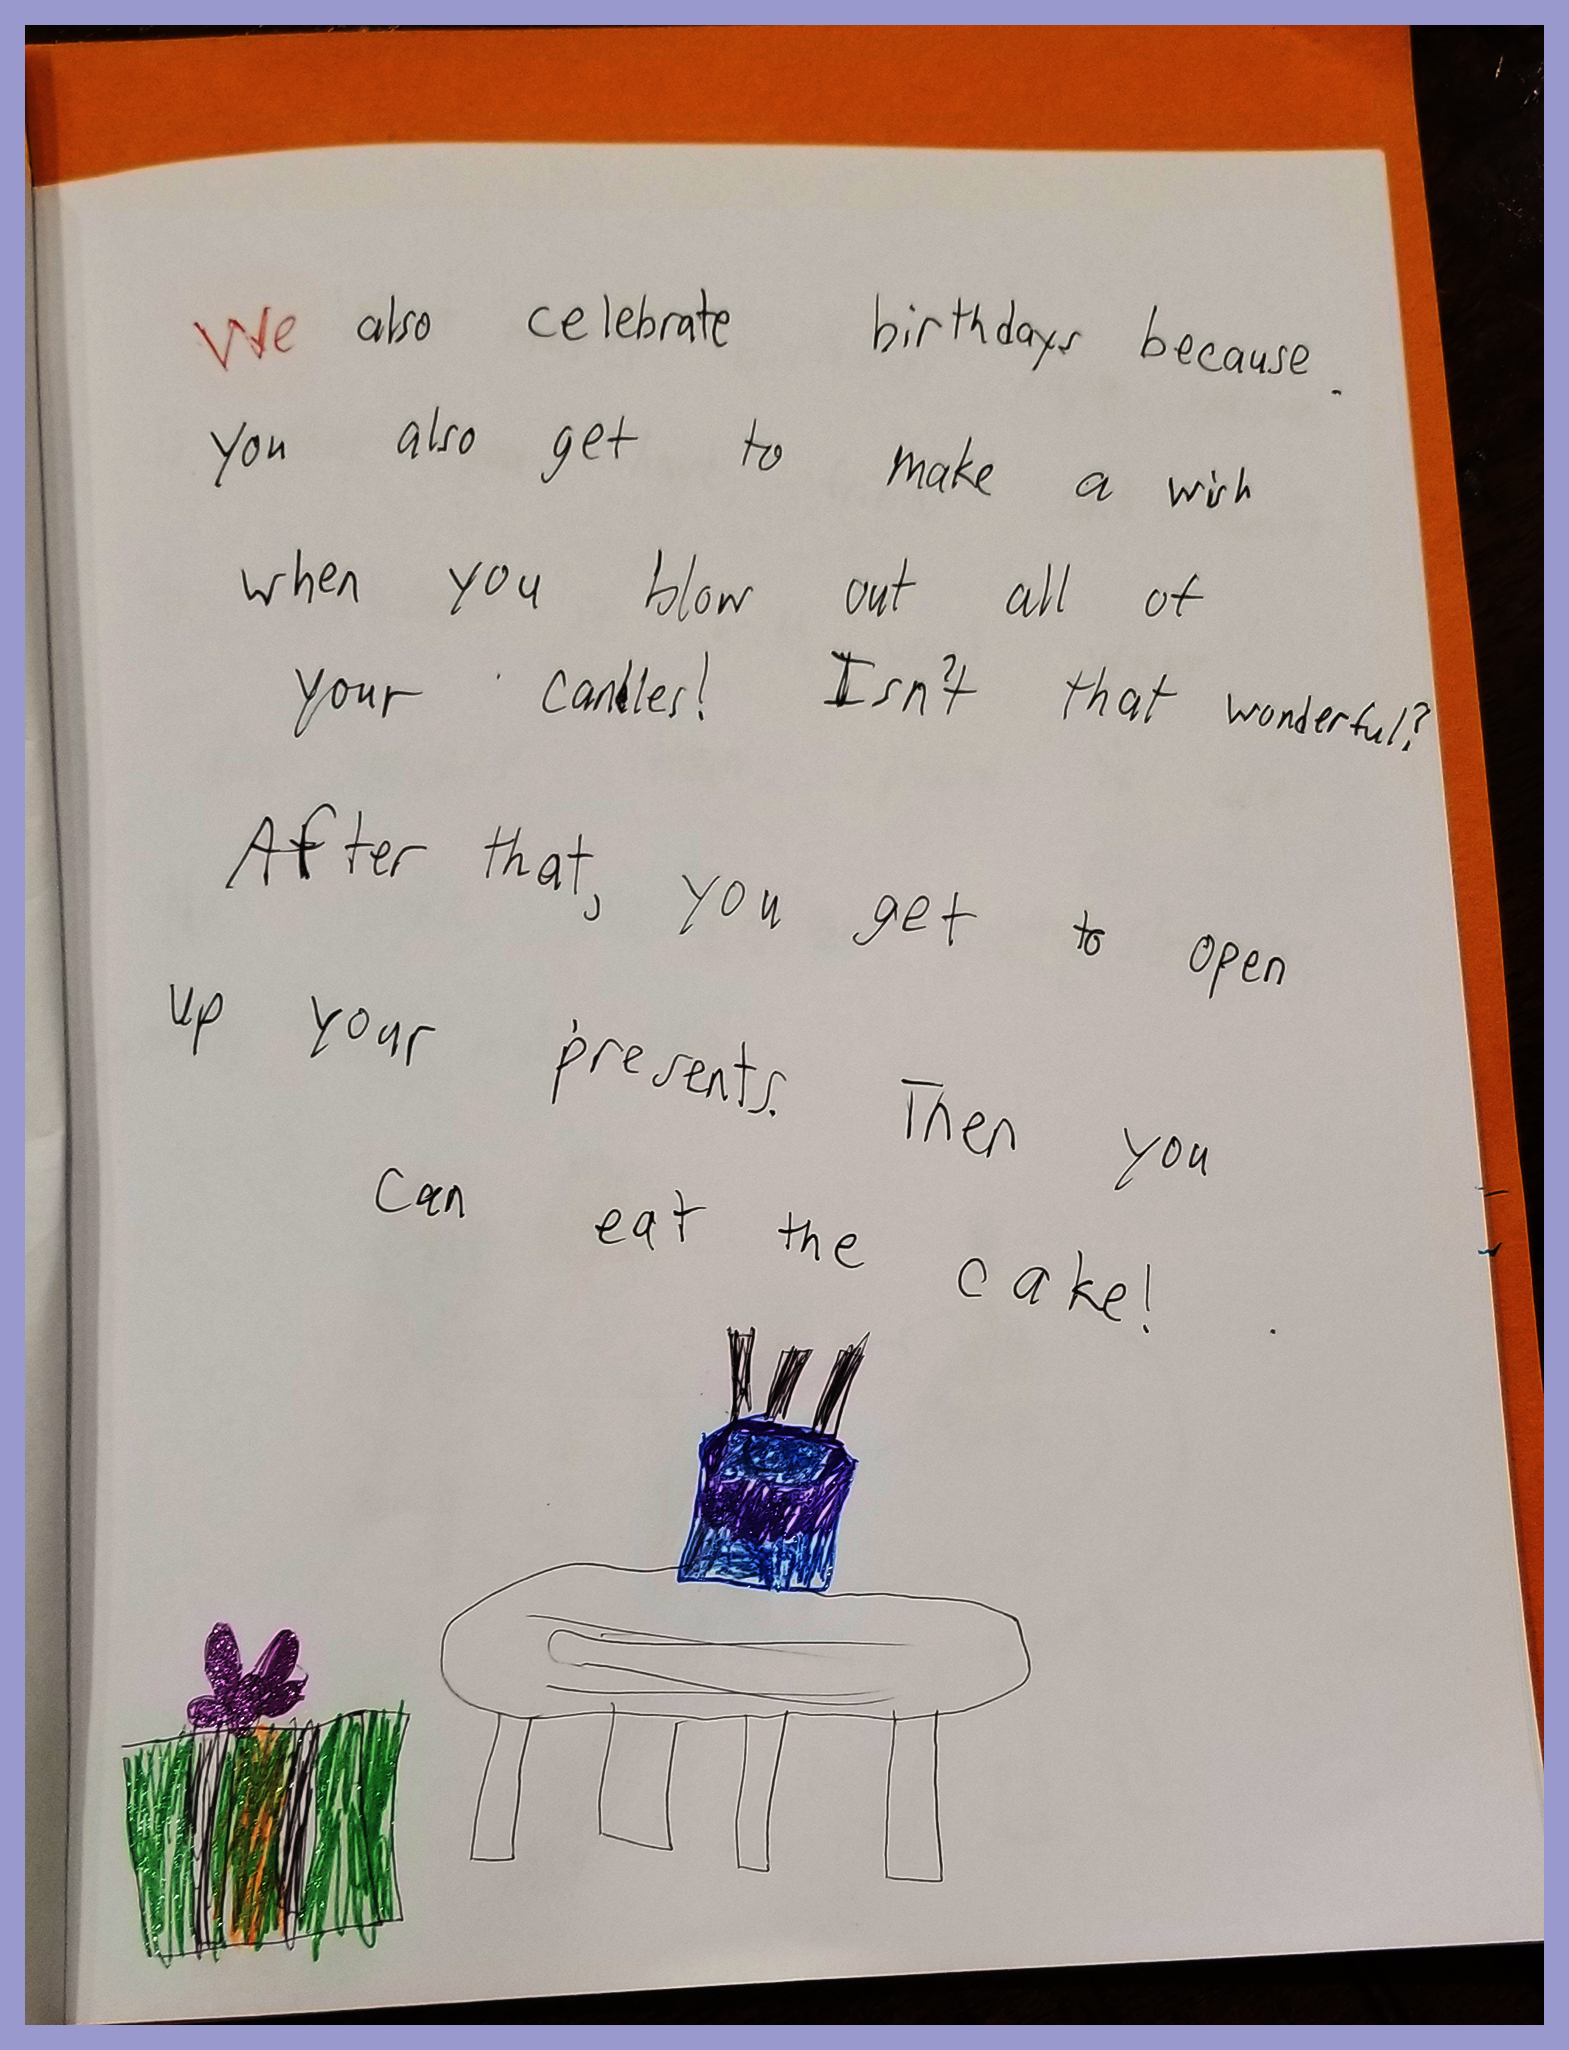 We also celebrate birthdays because
you also get to make a wish
when you blow out all of
your candles! Isn't that wonderful?
After that, you get to open
up your presents. Then you
can eat the cake!